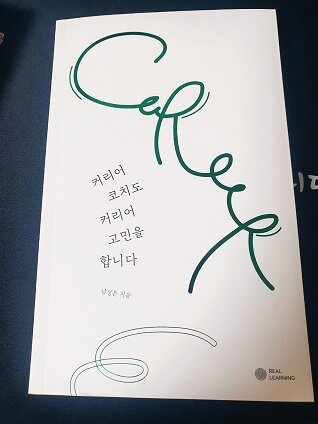 CaReeR
커리어
코치도
커리어
고민을
합니다
남상은 지음
REAL
LEARNING
니다